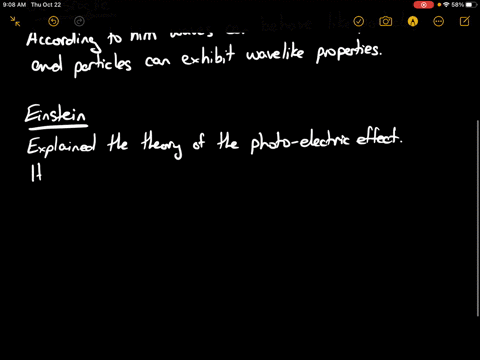 9:08 AM Thu Oct 22
58%
According to him waves can
and particles can exhibit wavelike properties.
Einstein
Explained the theory of the photo-electric effect.
It